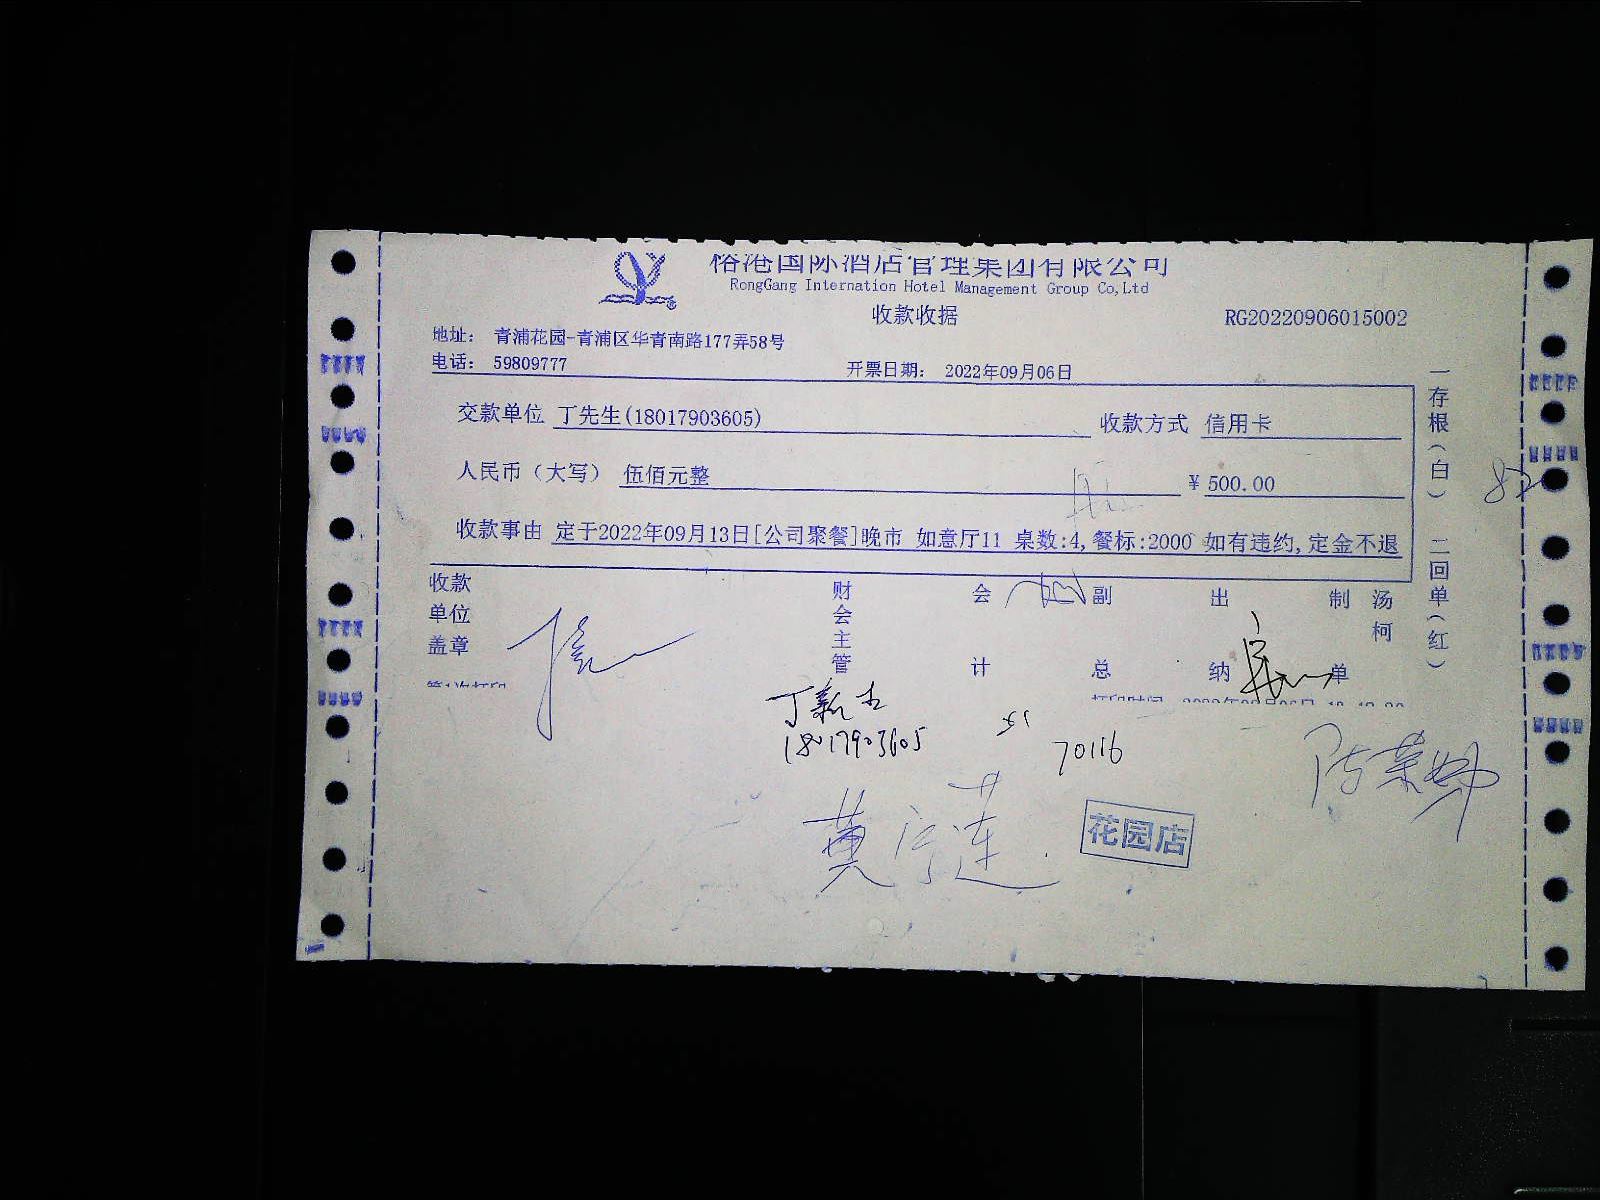 榕港国际酒店管理集团有限公司
RongGang Internation Hotel Management Group Co,Ltd
收款收据
RG20220906015002
地址： 青浦花园-青浦区华青南路177弄58号
电话： 59809777
开票日期： 2022年09月06日
交款单位 丁先生(18017903605)
收款方式 信用卡
人民币（大写） 伍佰元整
￥500.00
收款事由 定于2022年09月13日[公司聚餐]晚市 如意厅11 桌数:4,餐标:2000 如有违约,定金不退
一存根（白） 二回单（红）
收款单位盖章
财会主管
会计
副总
出纳
制单
汤柯
18017903605
70116
花园店